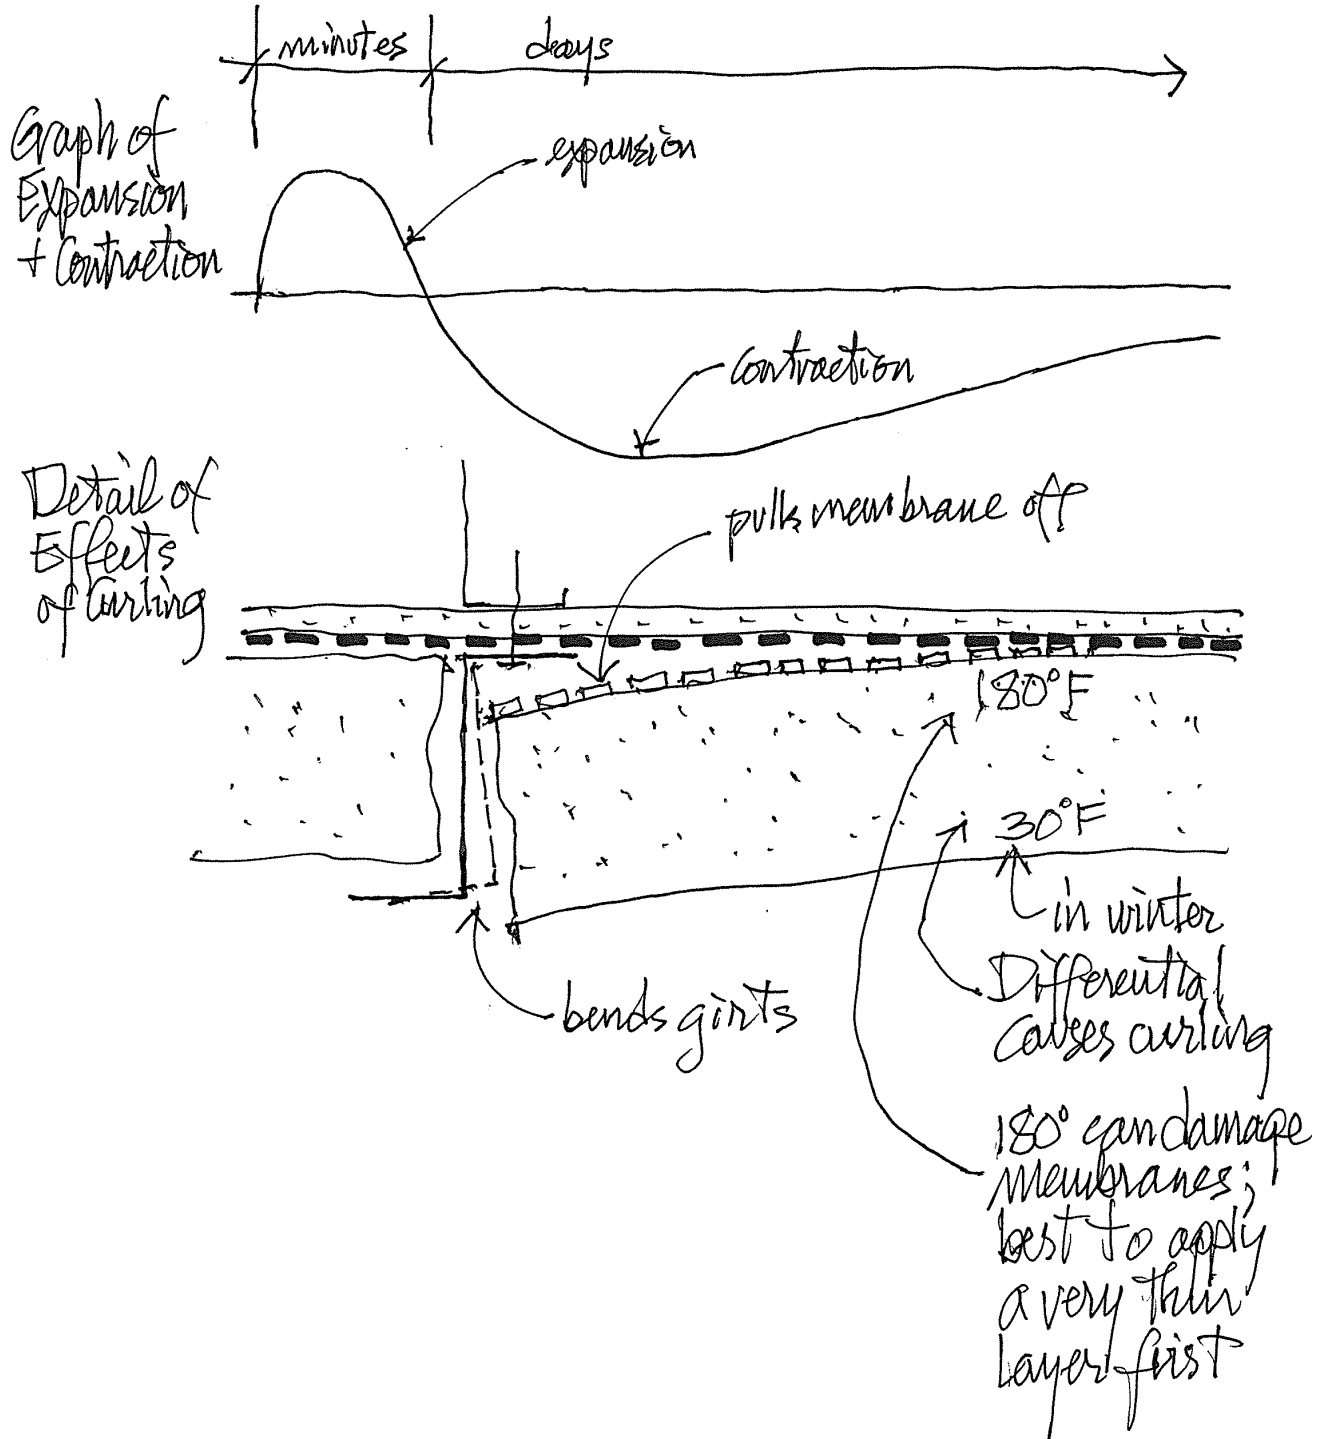 minutes
days
Graph of
Expansion
+ Contraction
expansion
contraction
Detail of
Effects
of Curling
pulls membrane off
180°F
30°F
in winter
Differential
causes curling
bends girts
180° can damage
membranes;
best to apply
a very thin
layer first